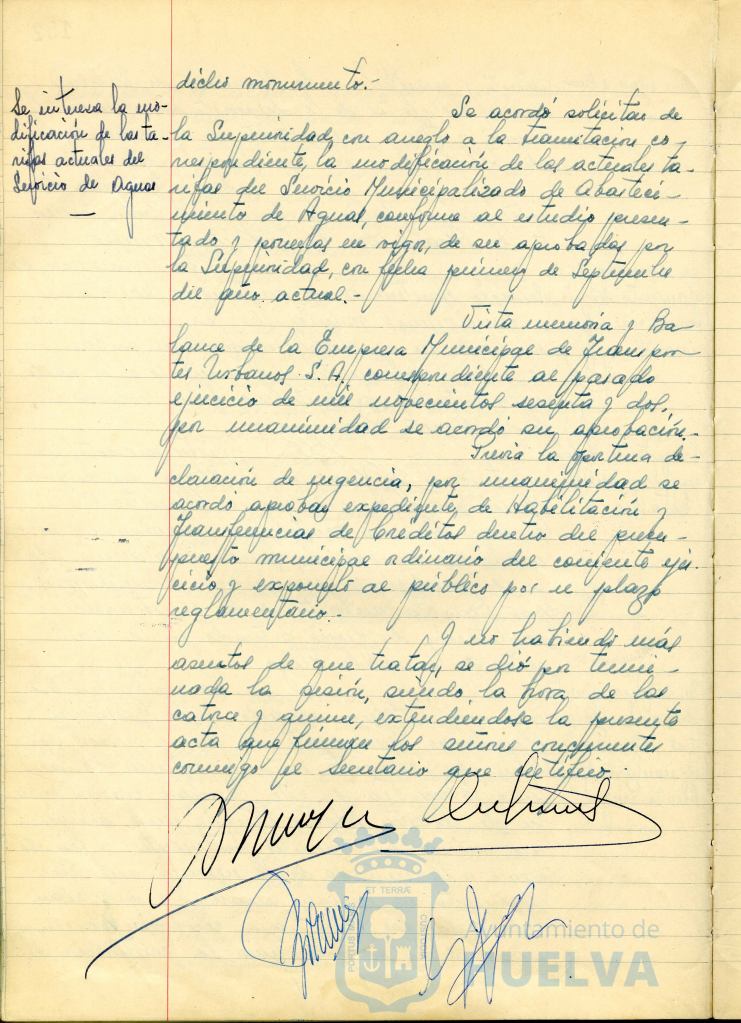 dicho monumento.-
Se interesa la mo-
dificación de las ta-
rifas actuales del
Servicio de Aguas
Se acordó solicitar de
la Superioridad, con arreglo a la tramitación co-
rrespondiente, la modificación de las actuales ta-
rifas del Servicio Municipalizado de Abasteci-
miento de Aguas, conforme al estudio presen-
tado y ponerlas en vigor, de ser aprobadas por
la Superioridad, con fecha primero de Septiembre
del año actual.-
Vista memoria y Ba-
lance de la Empresa Municipal de Transpor-
tes Urbanos S.A. correspondiente al pasado
ejercicio de mil novecientos sesenta y dos,
por unanimidad se acordó su aprobación.-
Previa la oportuna de-
claración de urgencia, por unanimidad se
acordó aprobar expediente de Habilitación y
Transferencias de Créditos dentro del presu-
puesto municipal ordinario del corriente ejer-
cicio y exponerlo al público por el plazo
reglamentario.-
Y no habiendo más
asuntos de que tratar, se dió por termi-
nada la sesión, siendo la hora de las
catorce y quince, extendiéndose la presente
acta que firman los señores concurrentes
conmigo el Secretario que certifico.
PORTUS MARIS
ET TERRÆ
CUSTODIA
Ayuntamiento de
HUELVA